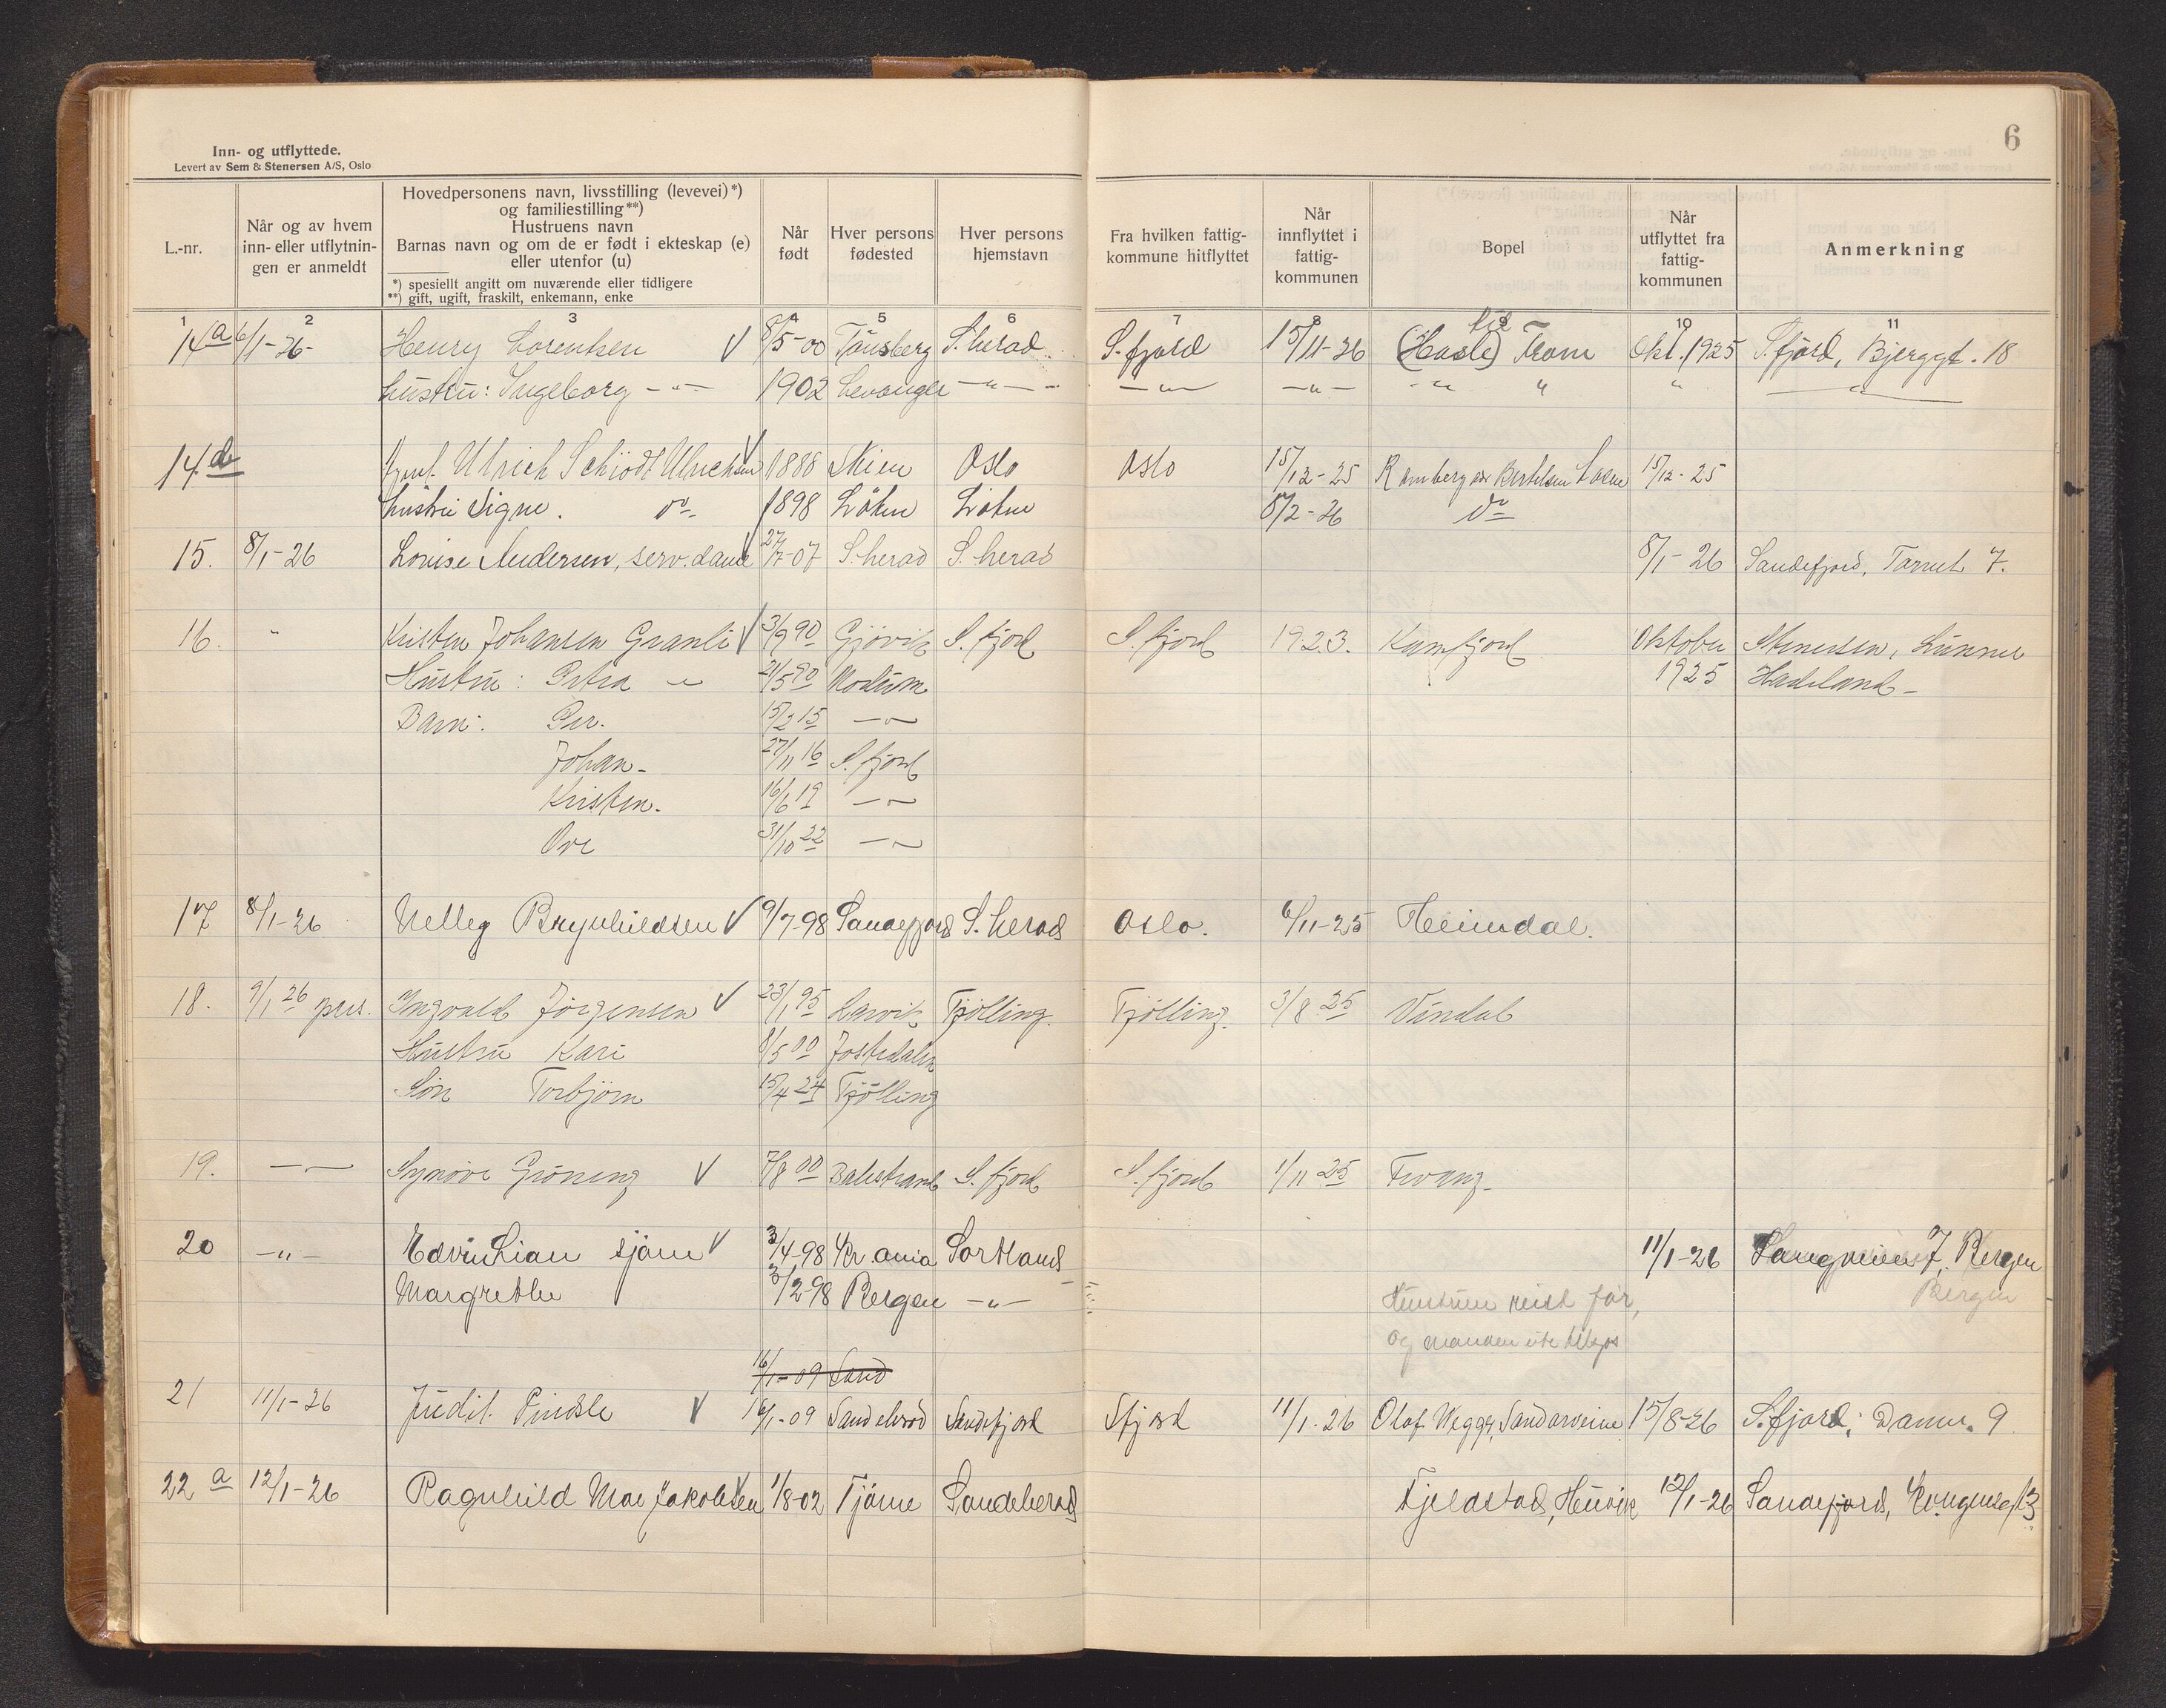 6
Inn- og utflyttede.
Levert av Sem & Stenersen A/S, Oslo
L.-nr.
Når og av hvem inn- eller utflytnin-gen er anmeldt
Hovedpersonens navn, livsstilling (levevei)*)
og familiestilling**)
Hustruens navn
Barnas navn og om de er født i ekteskap (e)
eller utenfor (u)
*) spesiellt angitt om nuværende eller tidligere
**) gift, ugift, fraskilt, enkemann, enke
Når født
Hver persons fødested
Hver persons hjemstavn
Fra hvilken fattig-kommune hitflyttet
Når innflyttet i fattig-kommunen
Bopel
Når utflyttet fra fattig-kommunen
Anmerkning
1 2 3 4 5 6 7 8 9 10 11
14a 6/1-26- Henry Lorentsen V 8/5-00 Tönsberg S.herad. S.fjord 15/11-26 (Hasle) Fram Okt. 1925 S.fjord, Bjerggt. 18
hustru: Ingeborg -"- 1902 Levanger -"- -"- -"- -"- " " "
14.d Ulrich Schiödt Ulrichsen V 1888 Skien Oslo Oslo 15/12-25 15/12-25
hustru Signe. do 1898 Löten Löten 8/2-26 do
15. 8/1-26 Lovise Andersen, serv.dame 27/7-07 S.herad S.herad 8/1-26 Sandefjord, Torvet 7.
16. " Kristen Johansen Granli V 3/9 90 Gjövik S.fjord S.fjord 1923. Kamfjord Oktober Stenersen, Lunner
Hustru: Petra 21/5 90 Modum 1925 Hadeland-
Barn: Per. 15/2 15 -"-
Johan- 27/11 16 S.fjord
Kristen. 16/6 19 -"-
Ove 31/10 22 -"-
17 8/1-26 Nelley Brynhildsen V 9/7-98 Sandefjord S.herad Oslo. 6/11-25 Heimdal.
18. 9/1 26 pers. Ingvald Jörgensen V 23/1 95 Larvik Tjölling. Tjölling. 3/8 25 Vindal
Hustru Kari 8/5 00 Jostedalen
Sön Torbjörn 15/4 24 Tjölling
19. -"- Synnöve Gröneng V 7/8 00 Balestrand S.fjord S.fjord 1/11 25 Fevang-
20 -"- Edvin Lian sjöm V 3/4-98 Kr.ania Sortland 11/1-26 Langveien 7, Bergen
Margrethe 3/2-98 Bergen -"- Hustruen reist før, Bergen
og manden ute tilsjøs
16/1-09 Sand
21 11/1-26 Judit Pindsle V 16/1-09 Sandeherad Sandefjord Sfjord 11/1-26 Olof Wegger, Sandarveine 15/8-26 S.fjord; Damv. 9
22 a 12/1-26 Ragnhild Moe Jakobsen V 1/8-02 Tjöme Sandeherad Fjeldstad, Heivik 12/1-26 Sandefjord, Kongensgt 3